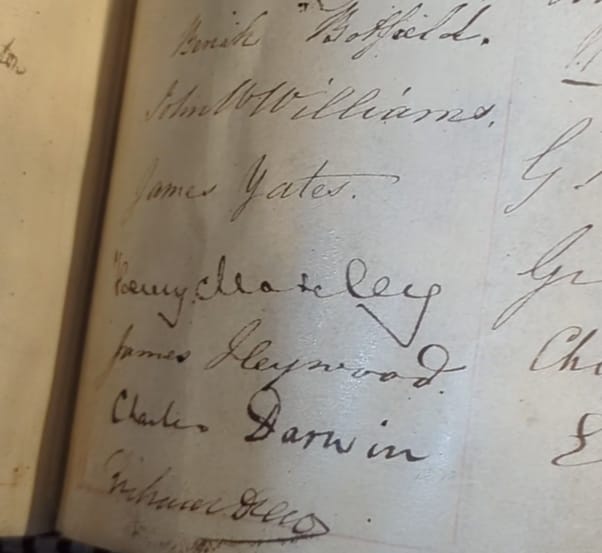 Beriah Botfield.
John W Williams.
James Yates.
Henry Moseley
James Heywood.
Charles Darwin